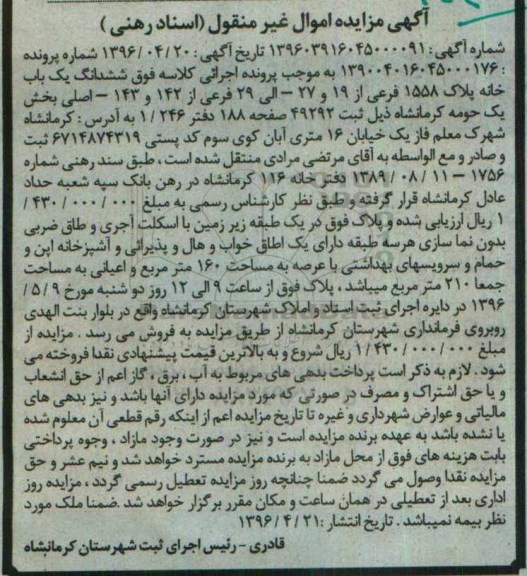 آگهی مزایده اموال غیر منقول (اسناد رهنی)
شماره آگهی: ۱۳۹۶۰۳۹۱۶۰۴۵۰۰۰۰۹۱ تاریخ آگهی: ۱۳۹۶/۰۴/۲۰ شماره پرونده
: ۱۳۹۰۰۴۰۱۶۰۴۵۰۰۰۱۷۶ به موجب پرونده اجرائی کلاسه فوق ششدانگ یک باب
خانه پلاک ۱۵۵۸ فرعی از ۱۹ و ۲۷ – الی ۲۹ فرعی از ۱۴۲ و ۱۴۳ – اصلی بخش
یک حومه کرمانشاه ذیل ثبت ۴۹۲۹۲ صفحه ۱۸۸ دفتر ۲۴۶ / ۱ به آدرس : کرمانشاه
شهرک معلم فاز یک خیابان ۱۶ متری آبان کوی سوم کد پستی ۶۷۱۴۸۷۴۳۱۹ ثبت
و صادر و مع الواسطه به آقای مرتضی مرادی منتقل شده است ، طبق سند رهنی شماره
۱۷۵۶ – ۱۱ / ۰۸ / ۱۳۸۹ دفتر خانه ۱۱۶ کرمانشاه در رهن بانک سپه شعبه حداد
عادل کرمانشاه قرار گرفته و طبق نظر کارشناس رسمی به مبلغ ۰۰۰ / ۰۰۰ / ۴۳۰ /
۱ ریال ارزیابی شده و پلاک فوق در یک طبقه زیر زمین با اسکلت آجری و طاق ضربی
بدون نما سازی هرسه طبقه دارای یک اطاق خواب و هال و پذیرائی و آشپزخانه اپن و
حمام و سرویسهای بهداشتی با عرصه به مساحت ۱۶۰ متر مربع و اعیانی به مساحت
جمعا ۲۱۰ متر مربع میباشد ، پلاک فوق از ساعت ۹ الی ۱۲ روز دو شنبه مورخ ۹ / ۵ /
۱۳۹۶ در دایره اجرای ثبت اسناد و املاک شهرستان کرمانشاه واقع در بلوار بنت الهدی
روبروی فرمانداری شهرستان کرمانشاه از طریق مزایده به فروش می رسد . مزایده از
مبلغ ۰۰۰ / ۰۰۰ / ۴۳۰ / ۱ ریال شروع و به بالاترین قیمت پیشنهادی نقدا فروخته می
شود . لازم به ذکر است پرداخت بدهی های مربوط به آب ، برق ، گاز اعم از حق انشعاب
و یا حق اشتراک و مصرف در صورتی که مورد مزایده دارای آنها باشد و نیز بدهی های
مالیاتی و عوارض شهرداری و غیره تا تاریخ مزایده اعم از اینکه رقم قطعی آن معلوم شده
یا نشده باشد به عهده برنده مزایده است و نیز در صورت وجود مازاد ، وجوه پرداختی
بابت هزینه های فوق از محل مازاد به برنده مزایده مسترد خواهد شد و نیم عشر و حق
مزایده نقدا وصول می گردد ضمنا چنانچه روز مزایده تعطیل رسمی گردد ، مزایده روز
اداری بعد از تعطیلی در همان ساعت و مکان مقرر برگزار خواهد شد .ضمنا ملک مورد
نظر بیمه نمیباشد . تاریخ انتشار : ۲۱ / ۴ / ۱۳۹۶
قادری - رئیس اجرای ثبت شهرستان کرمانشاه